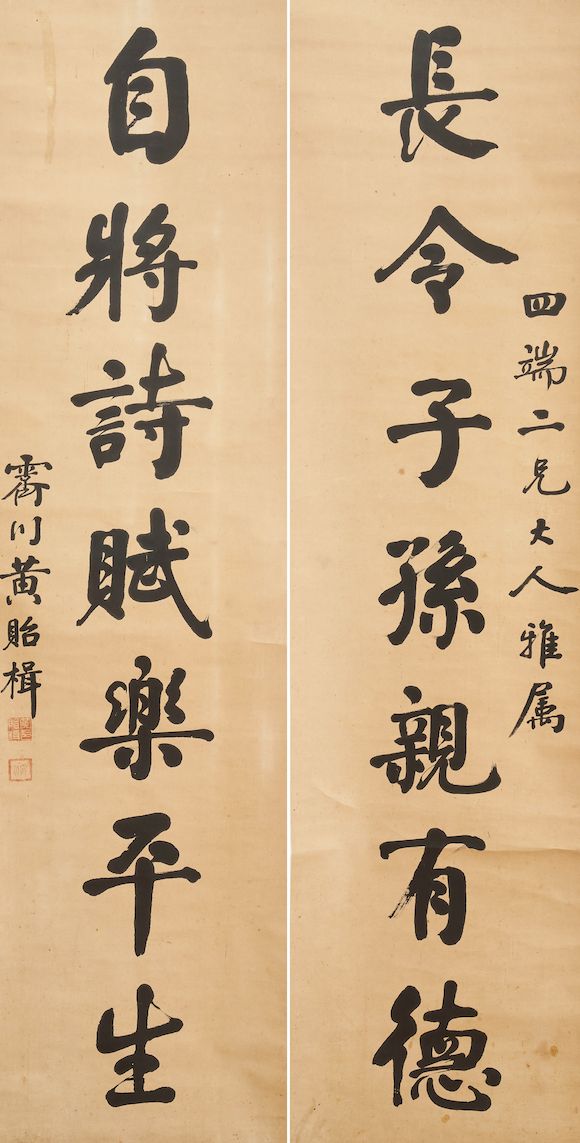 四端二兄大人雅属
長令子孫親有德
自將詩賦樂平生
霽川黄貽楫